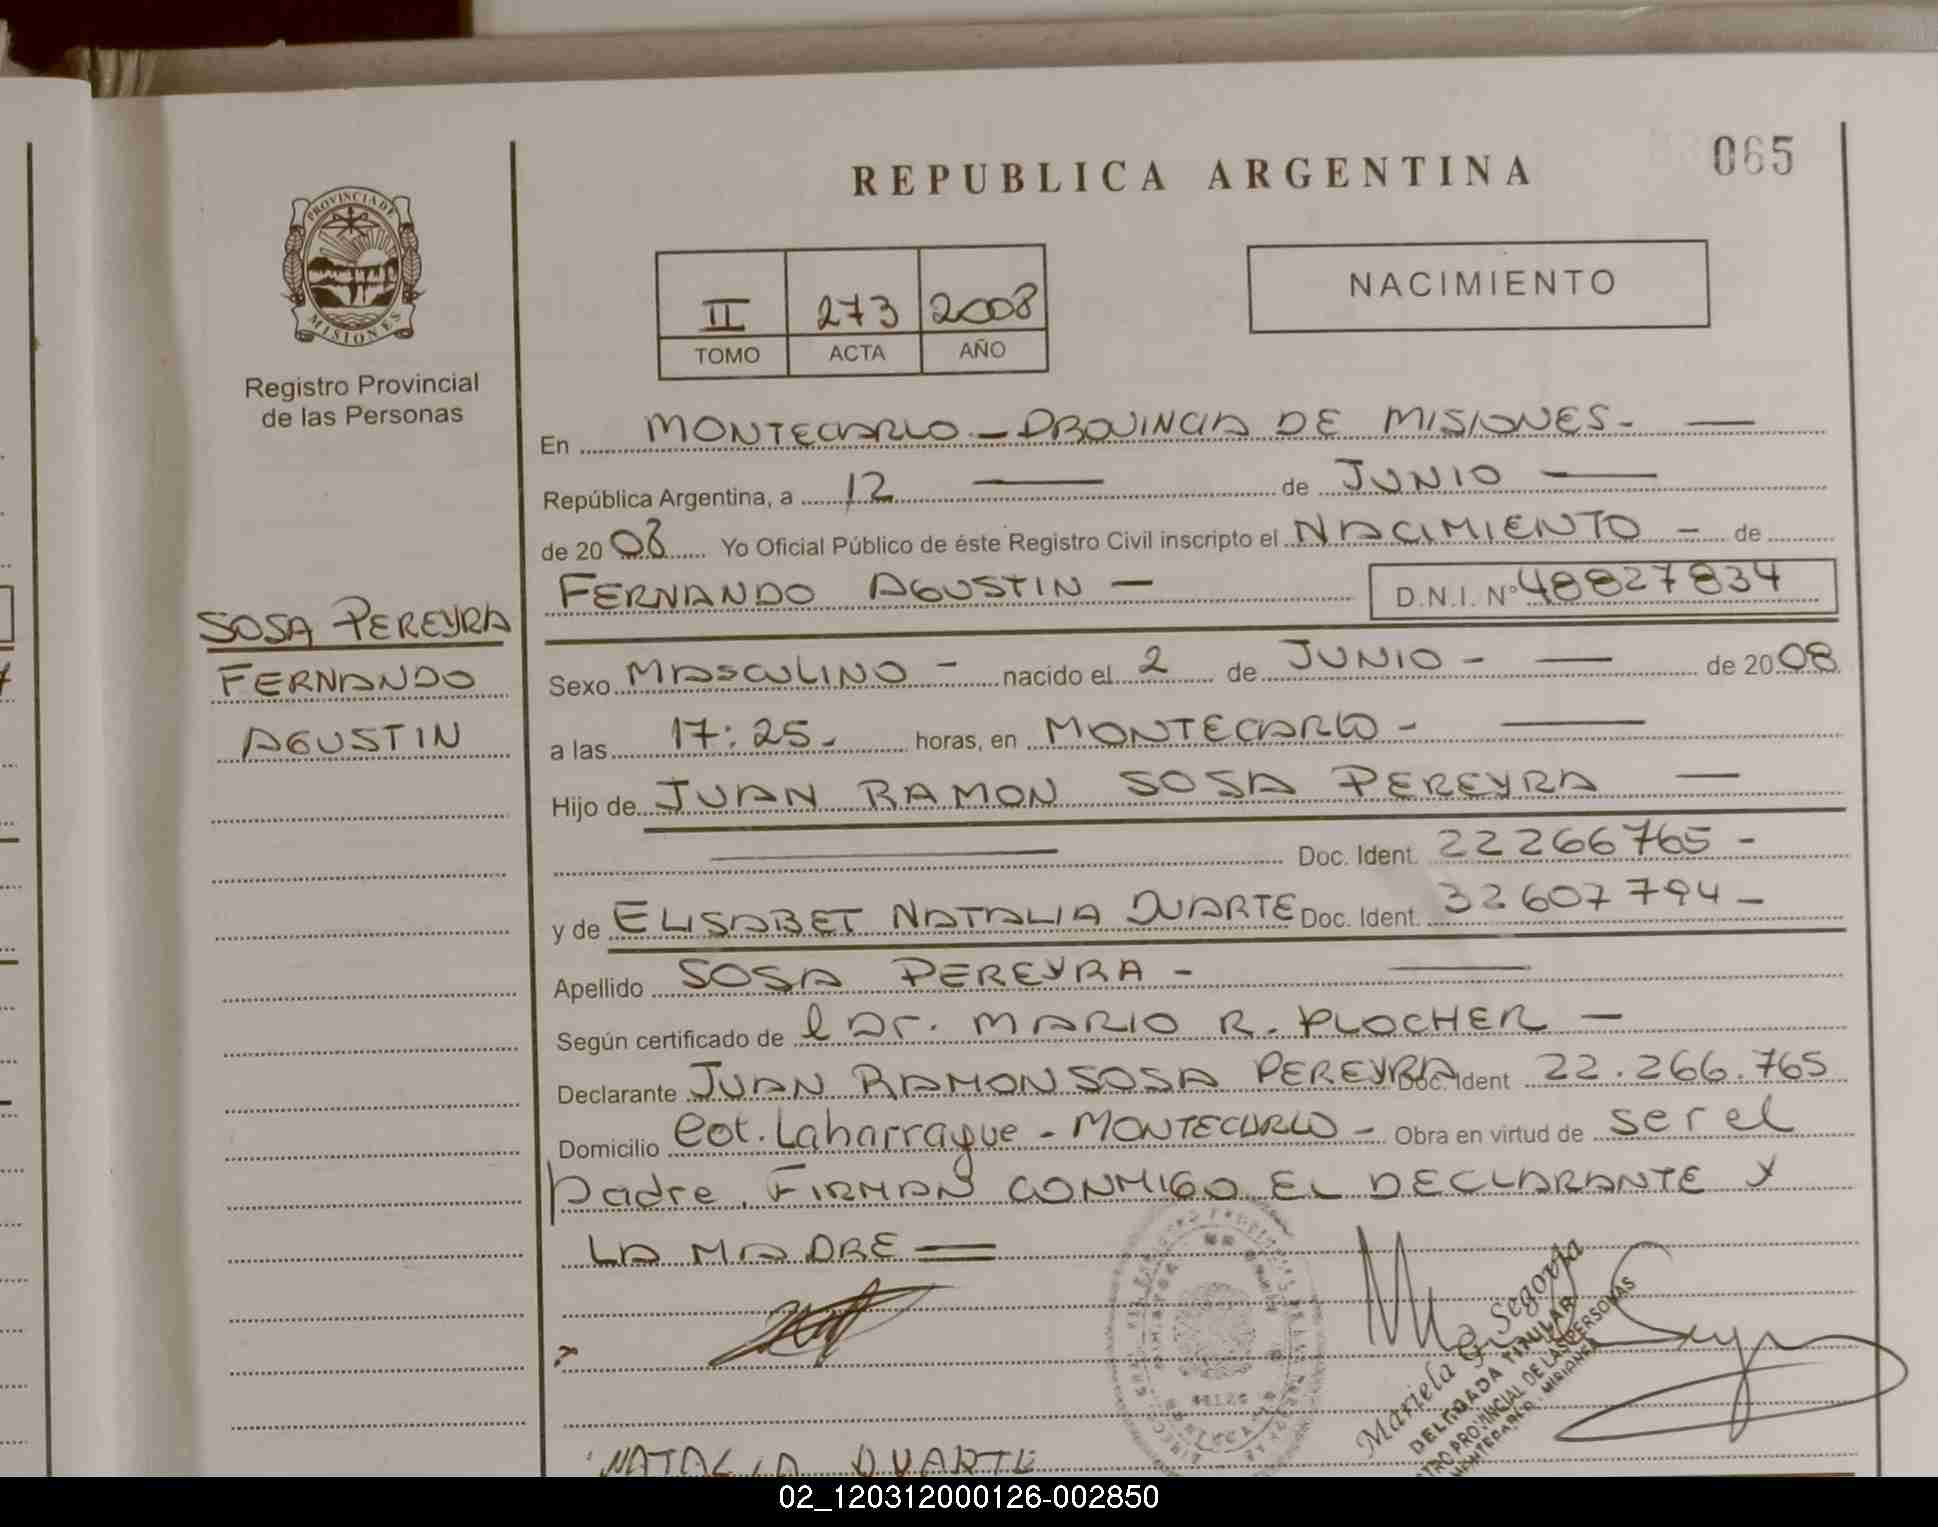 065
REPUBLICA ARGENTINA
PROVINCIA DE
MISIONES
Registro Provincial
de las Personas
II 273 2008
TOMO ACTA AÑO
NACIMIENTO
En MONTECARLO - PROVINCIA DE MISIONES -
República Argentina, a 12 de JUNIO
de 2008 Yo Oficial Público de éste Registro Civil inscripto el NACIMIENTO - de
FERNANDO AGUSTIN - D.N.I. Nº 48827834
SOSA PEREYRA
FERNANDO
AGUSTIN
Sexo MASCULINO - nacido el 2 de JUNIO - de 2008
a las 17:25. horas, en MONTECARLO -
Hijo de JUAN RAMON SOSA PEREYRA
Doc. Ident. 22266765 -
y de ELISABET NATALIA DUARTE Doc. Ident. 32607794 -
Apellido SOSA PEREYRA -
Según certificado de l Dr. MARIO R. PLOCHER -
Declarante JUAN RAMON SOSA PEREYRA Doc. Ident 22.266.765
Domicilio Cot. Laharrague - MONTECARLO - Obra en virtud de ser el
padre. FIRMAN CONMIGO EL DECLARANTE Y
LA MADRE
Mariela G. Segovia
DELEGADA TITULAR
PROVINCIAL DE LAS PERSONAS
NATALIA DUARTE
02_120312000126-002850